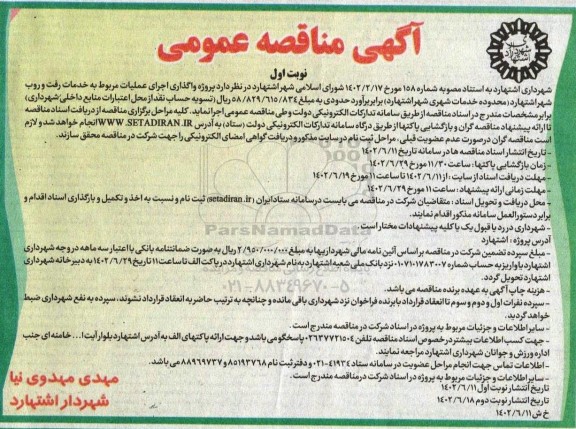 آگهی مناقصه عمومی
نوبت اول
شهرداری اشتهارد به استناد مصوبه شماره ۱۵۸ مورخ ۱۴۰۲/۲/۱۷ شورای اسلامی شهر اشتهارد در نظر دارد پروژه واگذاری اجرای عملیات مربوط به خدمات رفت و روب
شهر اشتهارد (محدوده خدمات شهری شهر اشتهارد) برابر برآورد حدودی به مبلغ ۵۸/۸۲۹/۶۱۵/۸۳۴ ریال (تسویه حساب نقد از محل اعتبارات منابع داخلی شهرداری)
برابر مشخصات مندرج در اسناد مناقصه از طریق سامانه تدارکات الکترونیکی دولت و طی مناقصه عمومی اجرا نماید. کلیه مراحل برگزاری مناقصه از دریافت اسناد مناقصه
تا ارائه پیشنهاد مناقصه گران و بازگشایی پاکتها از طریق درگاه سامانه تدارکات الکترونیکی دولت (ستاد) به آدرس WWW.SETADIRAN.IR انجام خواهد شد و لازم
است مناقصه گران در صورت عدم عضویت قبلی، مراحل ثبت نام در سایت مذکور و دریافت گواهی امضای الکترونیکی را جهت شرکت در مناقصه محقق سازند.
- تاریخ انتشار اسناد مناقصه ها در سامانه تاریخ ۱۴۰۲/۶/۱۱
- زمان بازگشایی پاکتها: ساعت ۱۱/۳۰ مورخ ۱۴۰۲/۶/۲۹
- مهلت دریافت اسناد از سایت: از ۱۴۰۲/۶/۱۱ تا ساعت ۱۱ مورخ ۱۴۰۲/۶/۱۹
- مهلت زمانی ارائه پیشنهاد: ساعت ۱۱ مورخ ۱۴۰۲/۶/۲۹
- محل دریافت و تحویل اسناد: متقاضیان شرکت در مناقصه می بایست در سامانه ستاد ایران (setadiran.ir) ثبت نام و نسبت به اخذ و تکمیل و بارگذاری اسناد اقدام و
برابر دستورالعمل سامانه مذکور اقدام نمایند.
- شهرداری در رد یا قبول یک یا کلیه پیشنهادات مختار است
آدرس پروژه: اشتهارد
- مبلغ سپرده تضمین شرکت در مناقصه بر اساس آئین نامه مالی شهرداریها به مبلغ ۲/۹۵۰/۰۰۰/۰۰۰ ریال به صورت ضمانتنامه بانکی با اعتبار سه ماهه در وجه شهرداری
اشتهارد یا واریز به حساب شماره ۰۱۰۷۱۰۱۷۸۳۰۰۷ نزد بانک ملی شعبه اشتهارد به نام شهرداری اشتهارد در پاکت الف تا ساعت ۱۱ تاریخ ۱۴۰۲/۶/۲۹ به دبیرخانه شهرداری
اشتهارد تحویل گردد.
- هزینه چاپ آگهی به عهده برنده مناقصه می باشد.
- سپرده نفرات اول و دوم و سوم تا انعقاد قرارداد با برنده فراخوان نزد شهرداری باقی مانده و چنانچه به ترتیب حاضر به انعقاد قرارداد نشوند، سپرده به نفع شهرداری ضبط
خواهد گردید.
- سایر اطلاعات و جزئیات مربوط به پروژه در اسناد شرکت در مناقصه مندرج است.
- جهت کسب اطلاعات بیشتر در خصوص اسناد مناقصه تلفن ۰۲۶۳۷۷۲۱۵۰۴ پاسخگو می باشد و جهت ارائه پاکتهای الف به آدرس اشتهارد بلوار آیت ا... خامنه ای جنب
اداره ورزش و جوانان شهرداری اشتهارد مراجعه نمایند.
- اطلاعات تماس جهت انجام مراحل عضویت در سامانه ستاد ۴۱۹۳۴-۰۲۱ و دفتر ثبت نام ۸۵۱۹۳۷۶۸ و ۸۸۹۶۹۷۳۷ می باشد.
- سایر اطلاعات و جزئیات مربوط به پروژه در اسناد شرکت در مناقصه مندرج است.
تاریخ انتشار نوبت اول ۱۴۰۲/۶/۱۱
تاریخ انتشار نوبت دوم ۱۴۰۲/۶/۱۸
خ ش ۱۴۰۲/۶/۱۱
مهدی مهدوی نیا
شهردار اشتهارد
ParsNamadData
۰۲۱-۸۸۳۴۹۶۷۰-۵